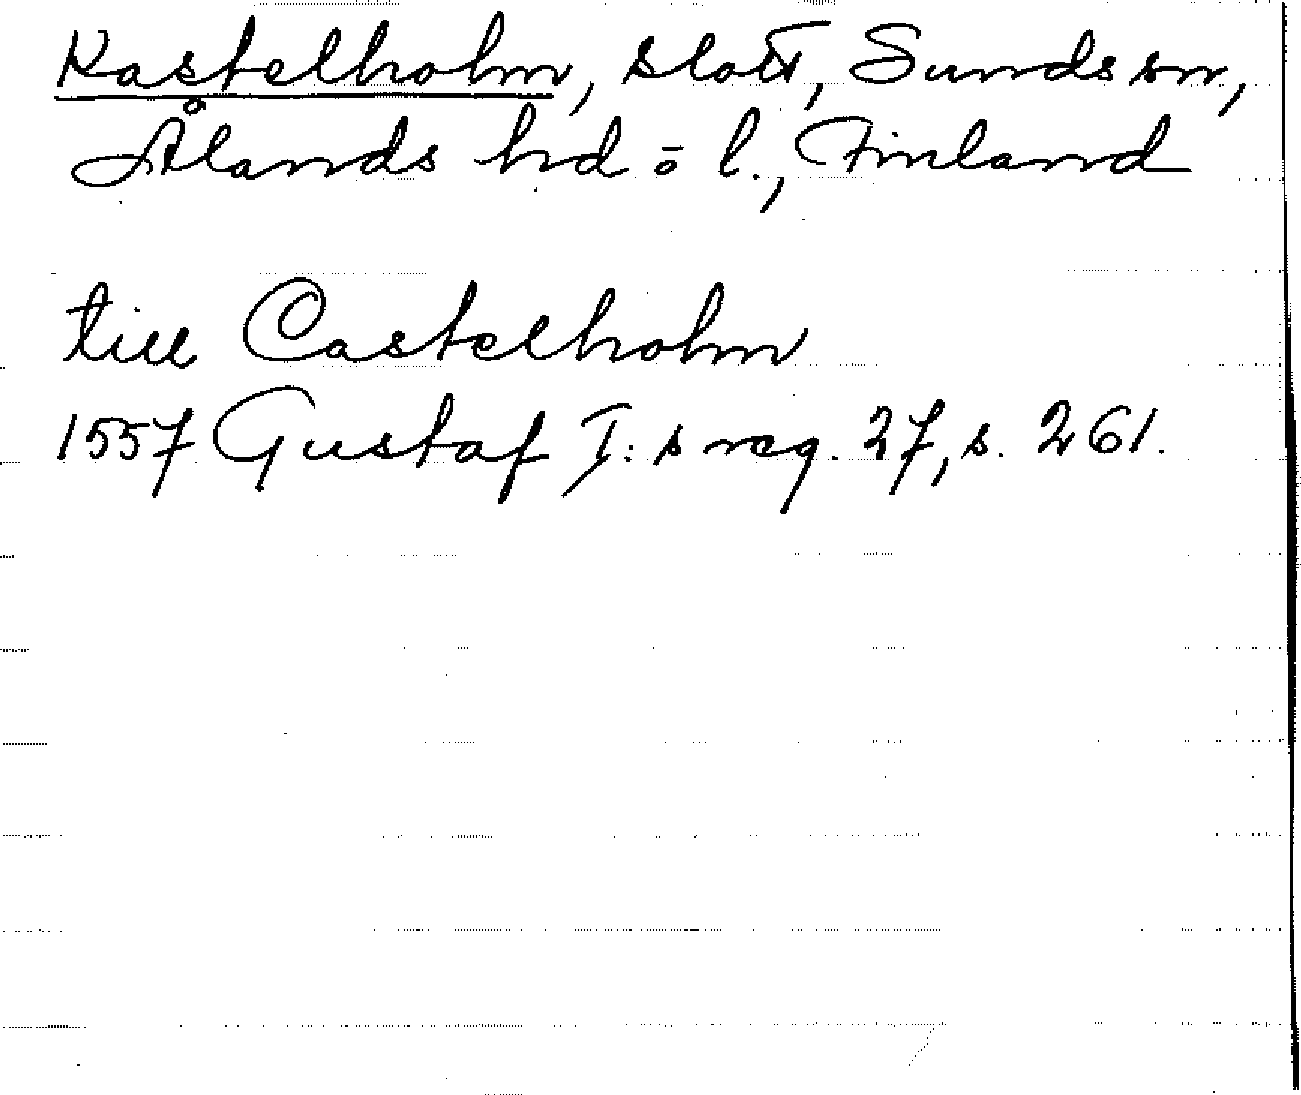 Kastelholm, slott, Sunds sn,
Ålands hd o l., Finland
till Castelholm
1557 Gustaf I:s reg. 27, s. 261.